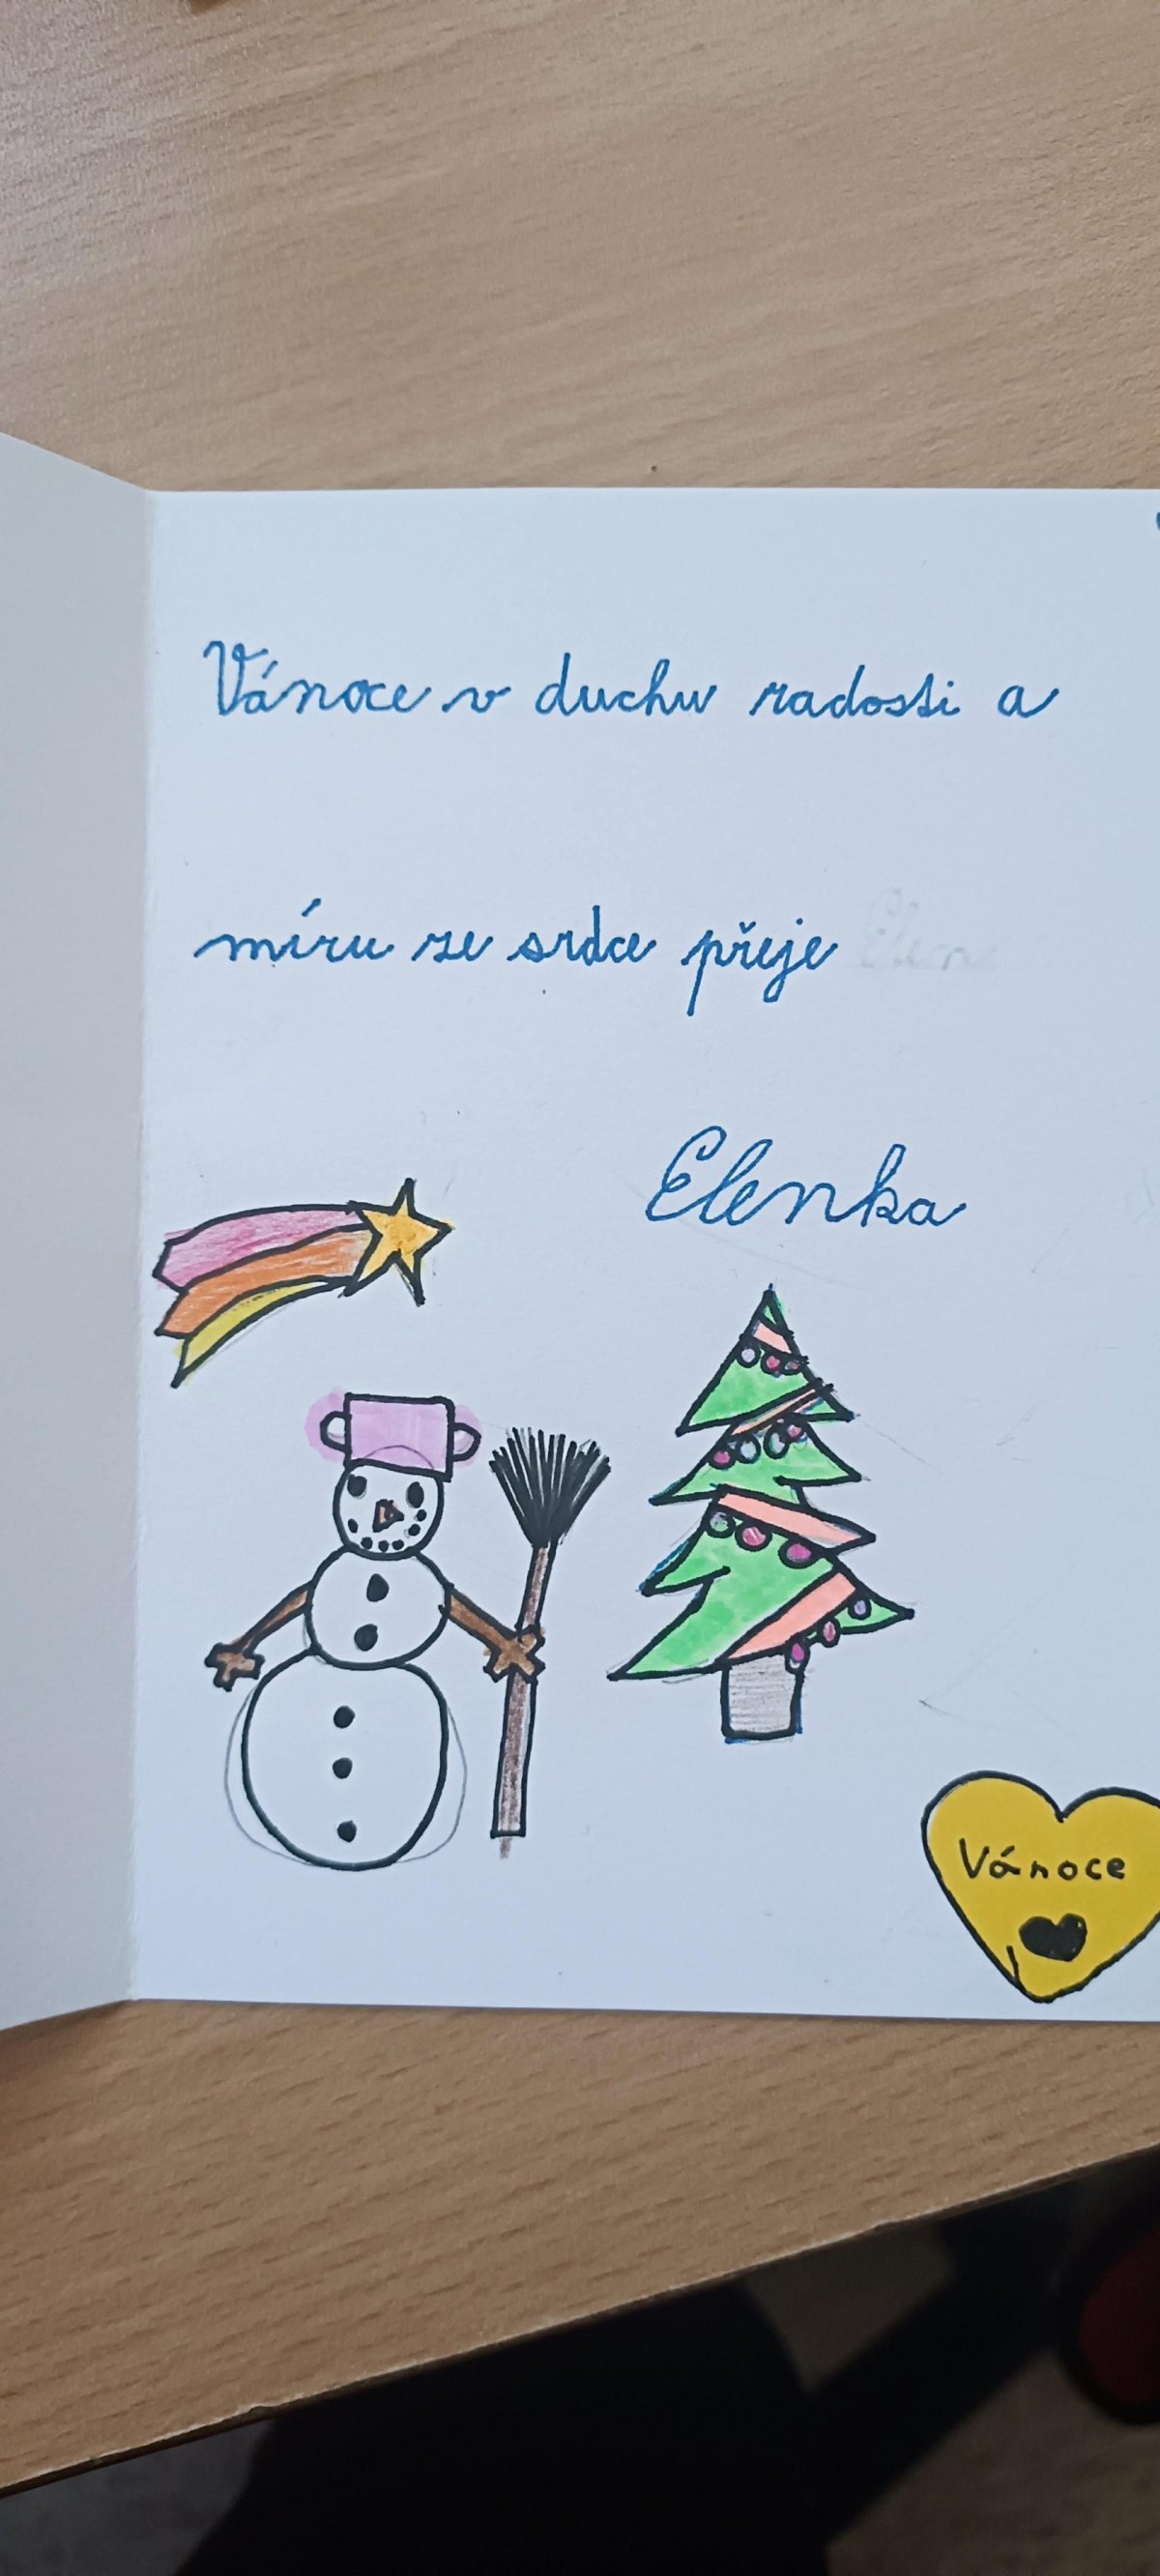 Vánoce v duchu radosti a
míru ze srdce přeje
Elenka
Vánoce